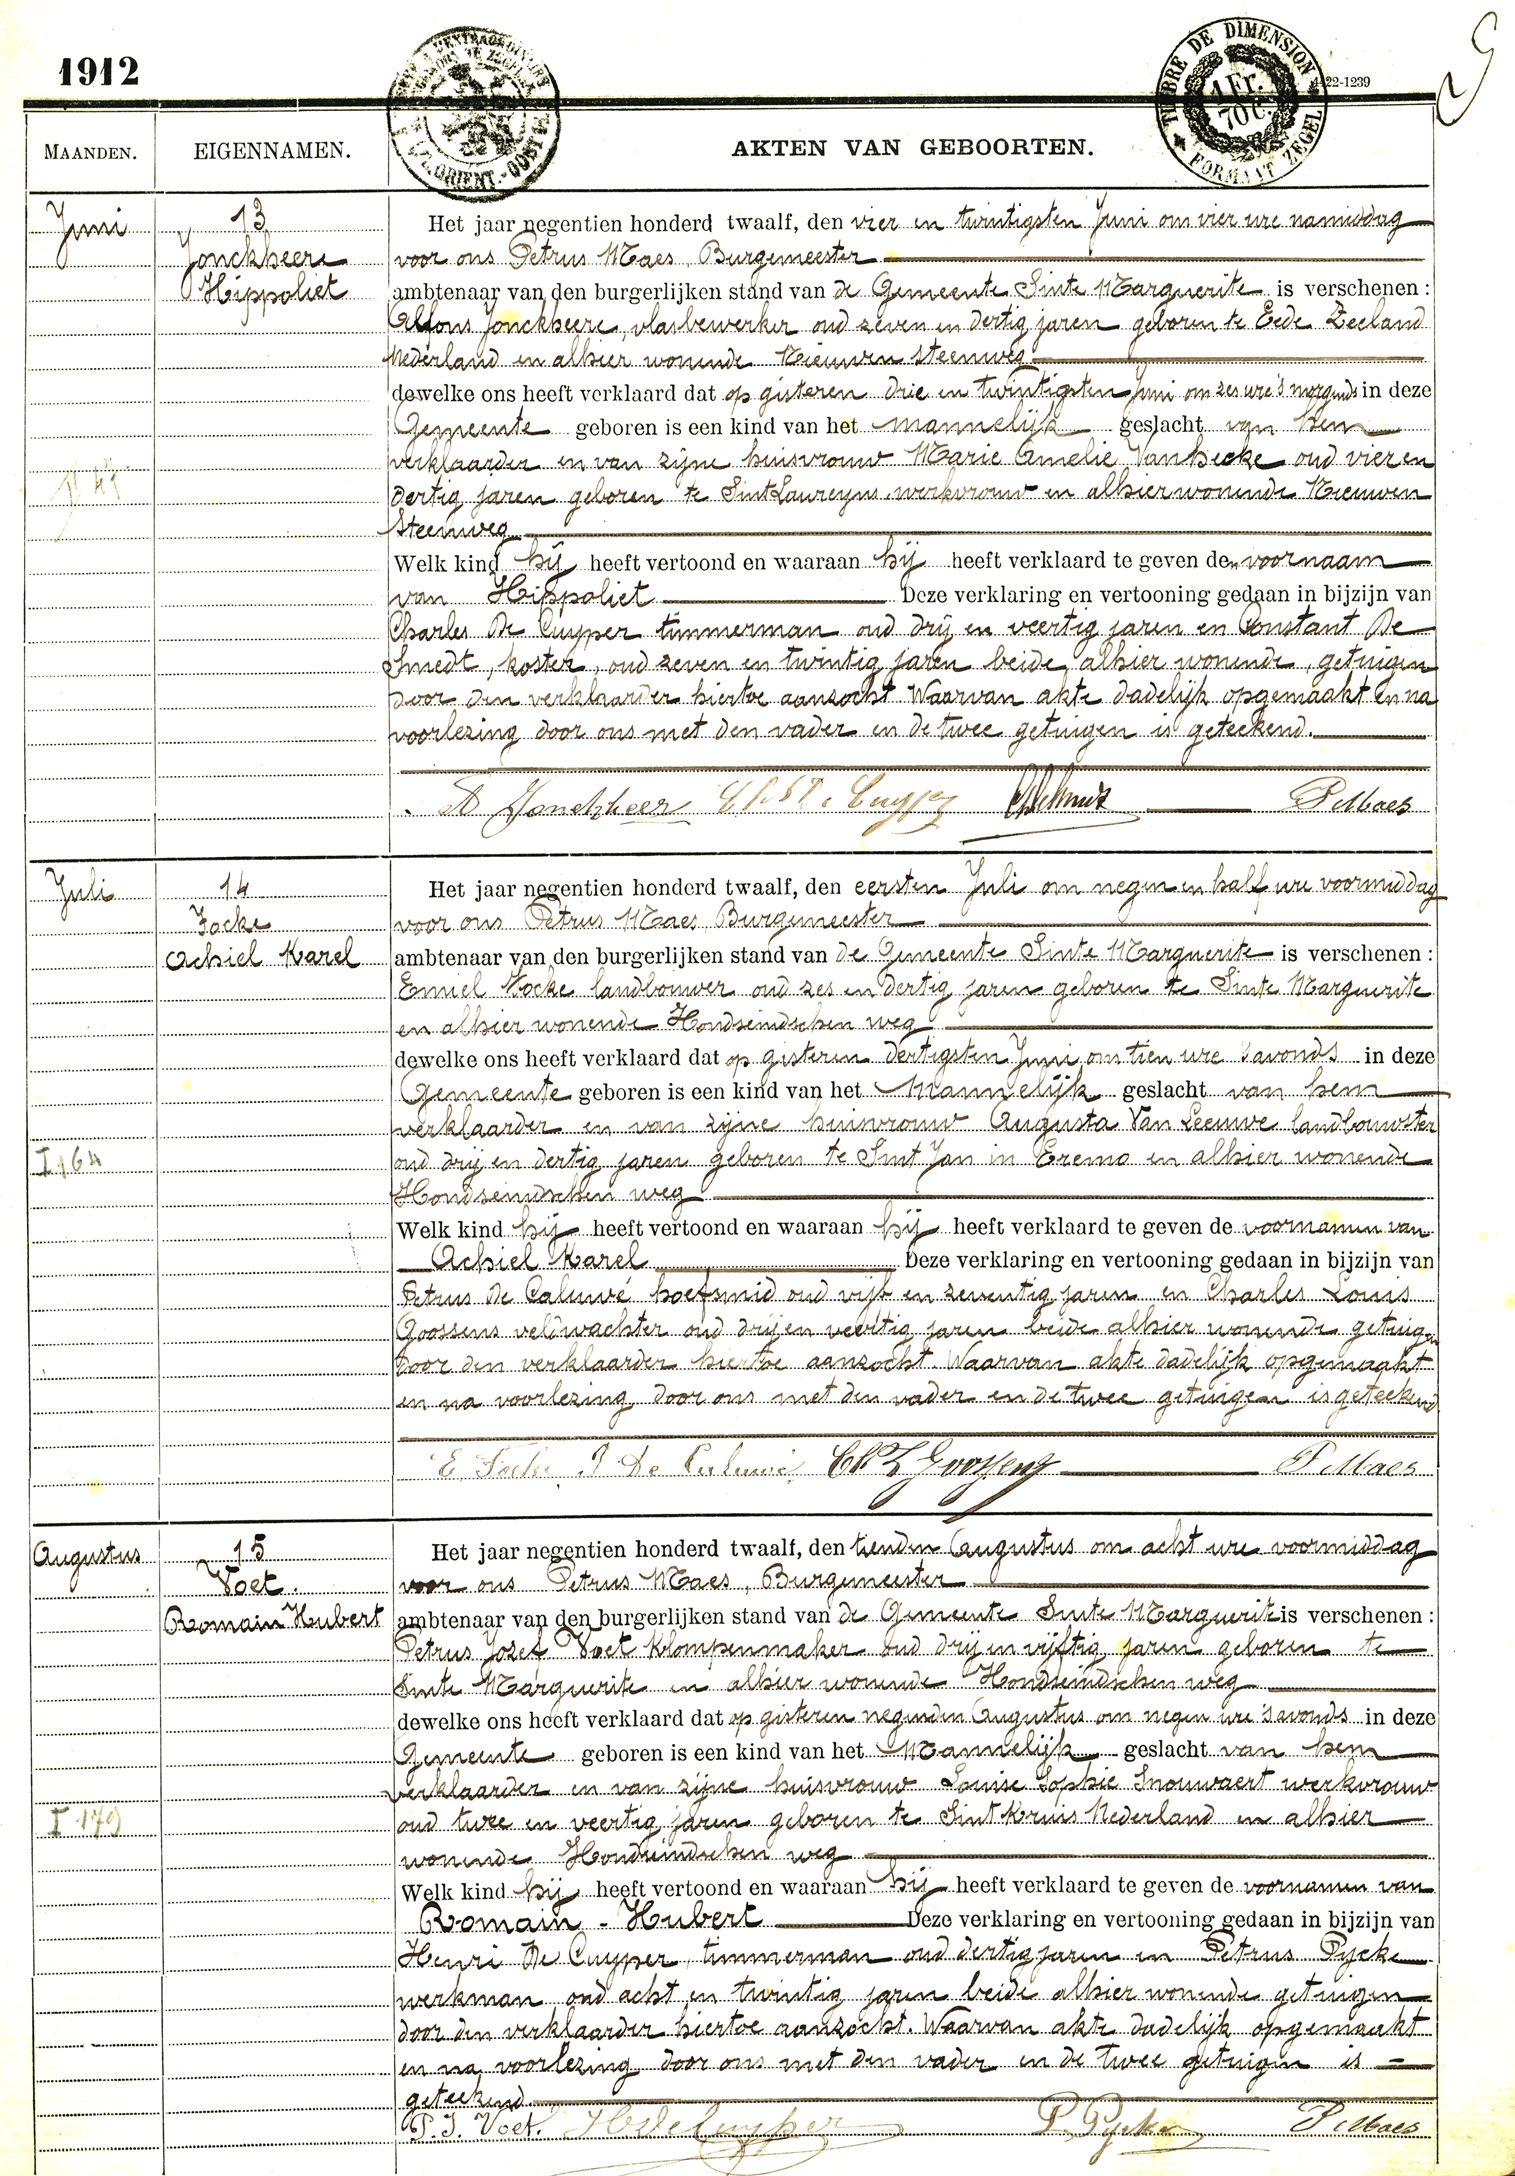 1912
TIMBRE DE DIMENSION
1 Fr.
70 C.
FORMAAT ZEGEL
4422-1239
MAANDEN.
EIGENNAMEN.
AKTEN VAN GEBOORTEN.
Juni
13
Jonckheere
Hippoliet
Het jaar negentien honderd twaalf, den vier en twintigsten Juni om vier ure namiddag
voor ons Petrus Maes, Burgemeester
ambtenaar van den burgerlijken stand van de Gemeente Sinte Marguerite is verschenen :
Alfons Jonckheere, vlasbewerker oud zeven en dertig jaren geboren te Eede Zeeland
Nederland en alhier wonende Nieuwen steenweg
dewelke ons heeft verklaard dat op gisteren drie en twintigsten Juni om zes ure 's morgends in deze
Gemeente geboren is een kind van het mannelijk geslacht van hem
verklaarder en van zijne huisvrouw Marie Amelie Vanhecke oud vier en
dertig jaren geboren te Sint Laureyns werkvrouw en alhier wonende Nieuwen
steenweg
Welk kind hij heeft vertoond en waaraan hij heeft verklaard te geven den voornaam
van Hippoliet Deze verklaring en vertooning gedaan in bijzijn van
Charles De Cuyper timmerman oud drij en veertig jaren en Constant De
Smedt, koster, oud zeven en twintig jaren beide alhier wonende, getuigen
door den verklaarder hiertoe aanzocht Waarvan akte dadelijk opgemaakt en na
voorlezing door ons met den vader en de twee getuigen is geteekend.
A Jonckheer P Maes
Juli
14
Focke
Achiel Karel
I 164
Het jaar negentien honderd twaalf, den eersten Juli om negen en half ure voormiddag
voor ons Petrus Maes, Burgemeester
ambtenaar van den burgerlijken stand van de Gemeente Sinte Marguerite is verschenen :
Emiel Focke landbouwer oud zes en dertig jaren geboren te Sinte Marguerite
en alhier wonende Hondseindschen weg
dewelke ons heeft verklaard dat op gisteren dertigsten Juni om tien ure 's avonds in deze
Gemeente geboren is een kind van het Mannelijk geslacht van hem
verklaarder en van zijne huisvrouw Augusta Van Leeuwe landbouwster
oud drij en dertig jaren geboren te Sint Jan in Eremo en alhier wonende
Hondseindschen weg
Welk kind hij heeft vertoond en waaraan hij heeft verklaard te geven de voornamen van
Achiel Karel Deze verklaring en vertooning gedaan in bijzijn van
Petrus De Caluwé hoefsmid oud vijf en zeventig jaren en Charles Louis
Goossens veldwachter oud drij en veertig jaren beide alhier wonende getuigen
door den verklaarder hiertoe aanzocht. Waarvan akte dadelijk opgemaakt
en na voorlezing door ons met den vader en de twee getuigen is geteekend
E Focke P De Caluwé Ch L Goossens P Maes
Augustus
15
Voet.
Romain Hubert
I 179
Het jaar negentien honderd twaalf, den tienden Augustus om acht ure voormiddag
voor ons Petrus Maes, Burgemeester
ambtenaar van den burgerlijken stand van de Gemeente Sinte Marguerite is verschenen :
Petrus Jozef Voet Klompenmaker oud drij en vijftig jaren geboren te
Sinte Marguerite en alhier wonende Hondseindschen weg
dewelke ons heeft verklaard dat op gisteren negenden Augustus om negen ure 's avonds in deze
Gemeente geboren is een kind van het Mannelijk geslacht van hem
verklaarder en van zijne huisvrouw Louise Sophie Snouwaert werkvrouw
oud twee en veertig jaren geboren te Sint Kruis Nederland en alhier
wonende Hondseindschen weg
Welk kind hij heeft vertoond en waaraan hij heeft verklaard te geven de voornamen van
Romain - Hubert Deze verklaring en vertooning gedaan in bijzijn van
Henri De Cuyper, timmerman oud dertig jaren en Petrus Pycke
werkman oud acht en twintig jaren beide alhier wonende getuigen
door den verklaarder hiertoe aanzocht. Waarvan akte dadelijk opgemaakt
en na voorlezing door ons met den vader en de twee getuigen is
geteekend
P. J. Voet. H De Cuyper P. Pycke P Maes